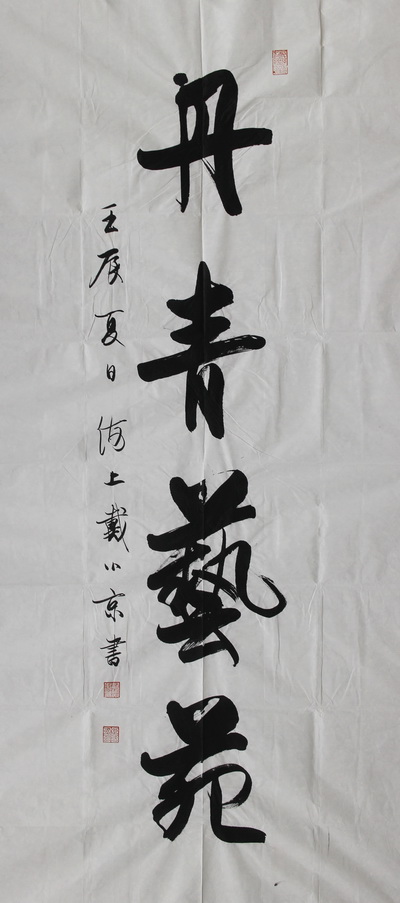 丹青藝苑
壬辰夏日 海上戴小京書